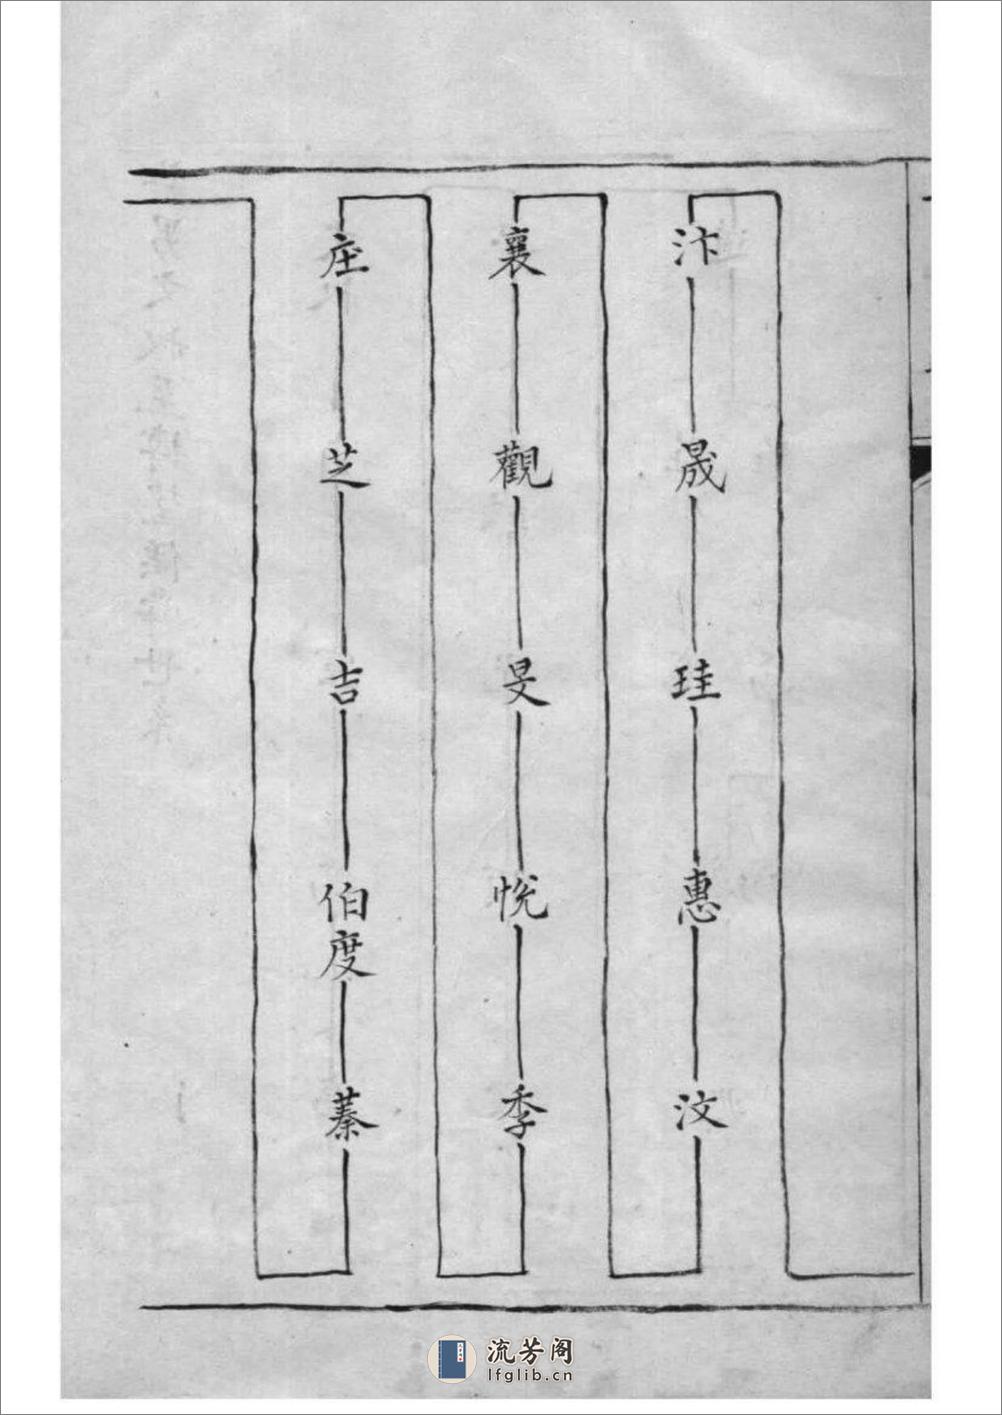 汴
晟
珪
惠
汶
襄
觀
旻
悅
季
庄
芝
吉
伯度
蓁
流芳阁
lfglib.cn